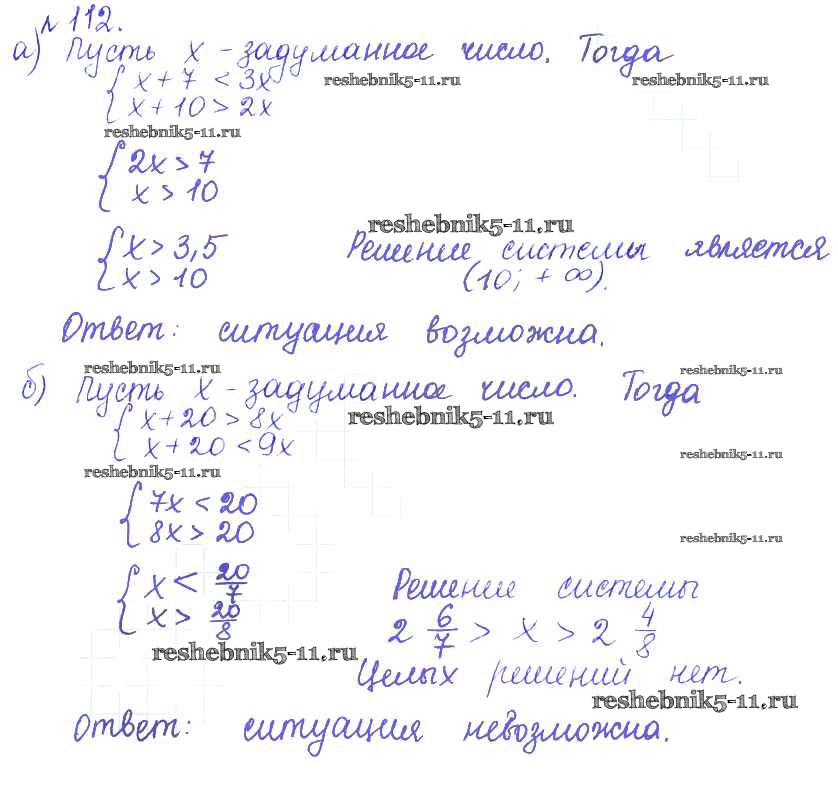 № 112.
а) Пусть x - задуманное число. Тогда
{ x + 7 < 3x
reshebnik5-11.ru
reshebnik5-11.ru
{ x + 10 > 2x
reshebnik5-11.ru
{ 2x > 7
{ x > 10
reshebnik5-11.ru
{ x > 3,5 Решение системы является
{ x > 10 (10; + ∞).
Ответ: ситуация возможна.
reshebnik5-11.ru
reshebnik5-11.ru
б) Пусть x - задуманное число. Тогда
{ x + 20 > 8x
reshebnik5-11.ru
{ x + 20 < 9x
reshebnik5-11.ru
reshebnik5-11.ru
{ 7x < 20
{ 8x > 20
reshebnik5-11.ru
{ x < 20/7 Решение системы
{ x > 20/8 2 6/7 > x > 2 4/8
reshebnik5-11.ru
Целых решений нет.
reshebnik5-11.ru
Ответ: ситуация невозможна.